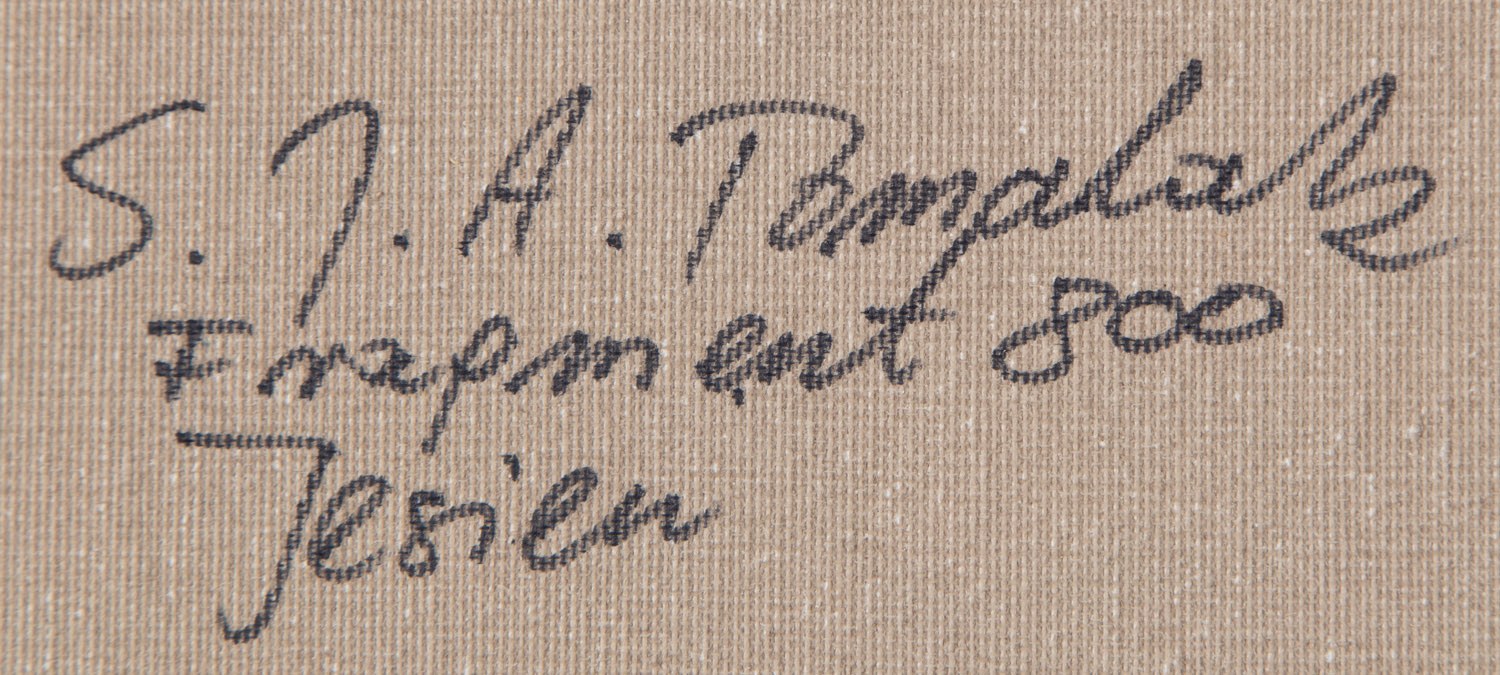 S. J. A. Tomalak
Fragment 800
Jesien